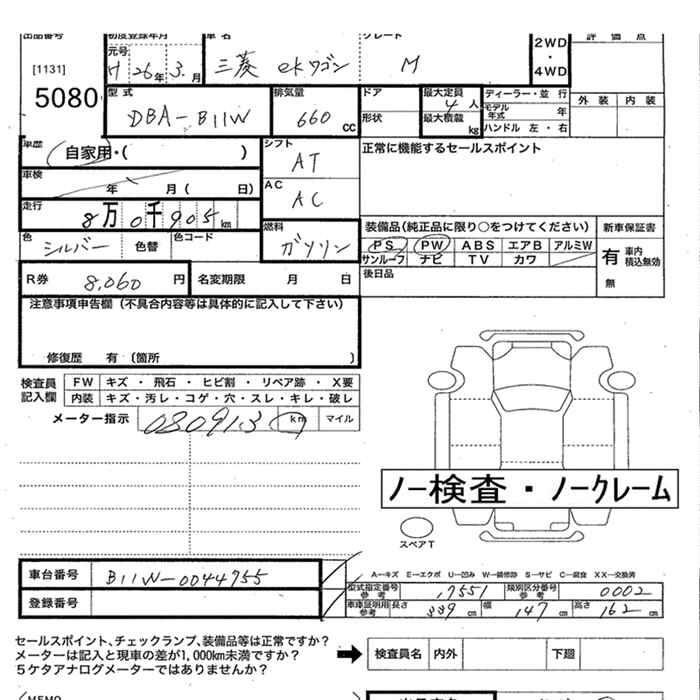 出品番号 初度登録年月 車名 グレード 評価点
元号
[1131] H 26年 3.月 三菱 ekワゴン M 2WD・4WD
5080 型式 排気量 ドア 最大定員 ディーラー・並行 外装 内装
DBA-B11W 660cc 4人 モデル年式 年
形状 最大積載 kg ハンドル 左・右
車歴 自家用・( ) シフト AT 正常に機能するセールスポイント
車検 年 月( 日) AC AC
走行 8万0千905km 燃料 ガソリン 装備品(純正品に限り○をつけてください) 新車保証書
色 シルバー 色替 色コード PS PW ABS エアB アルミW 有 車内積込無効
サンルーフ ナビ TV カワ 無
R券 8,060円 名変期限 月 日 後日品
注意事項申告欄(不具合内容等は具体的に記入して下さい)
修復歴 有 (箇所 )
検査員記入欄 FW キズ・飛石・ヒビ割・リペア跡・X要
内装 キズ・汚レ・コゲ・穴・スレ・キレ・破レ
メーター指示 080913 km マイル
ノー検査・ノークレーム
スペアT
A―キズ E―エクボ U―凹み W―補修跡 S―サビ C―腐食 XX―交換済
車台番号 B11W-0044955 型式指定番号参考 17551 類別区分番号参考 0002
登録番号 車庫証明用参考 長さ 339cm 幅 147cm 高さ 162cm
セールスポイント、チェックランプ、装備品等は正常ですか?
メーターは記入と現車の差が1,000km未満ですか? 検査員名 内外 下廻
5ケタアナログメーターではありませんか?
(MEMO